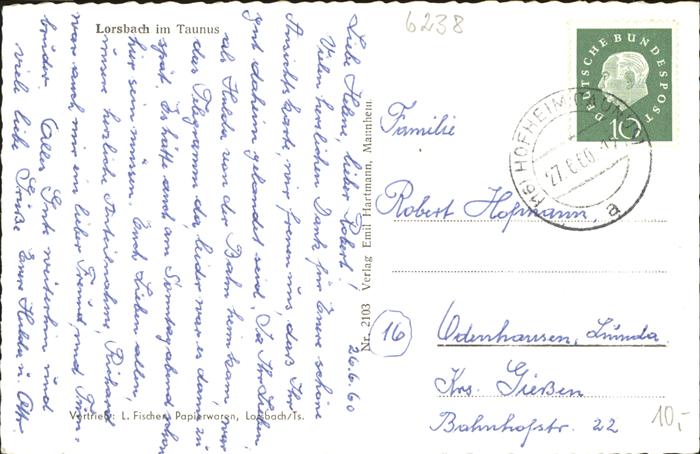 Lorsbach im Taunus
6238
DEUTSCHE BUNDESPOST
10
(16) HOFHEIM (TAUNUS)
27.6.60
a
Liebe Helene, lieber Robert!
26.6.60
Vielen herzlichen Dank für Eure schöne
Ansichtskarte, wir freuen uns, daß Ihr
gut daheim gelandet seid. Ja Ihr Lieben,
als Hulda von der Bahn heimkam, war
das Telegramm da, leider war es dann zu
spät. Es hätte am Sonntagabend schon
hier sein müssen. Euch Lieben allen,
unsere herzliche Anteilnahme, Richard
war auch mir ein lieber Freund und
bruder. Alles Gute weiterhin und
viele liebe Grüße Eure Hulda u.
Nr. 2103 Verlag Emil Hartmann, Mannheim.
Familie
Robert Hofmann,
16
Odenhausen, Lumda
Krs. Gießen
Bahnhofstr. 22
10,-
Vertrieb: L. Fischer, Papierwaren, Lorsbach/Ts.